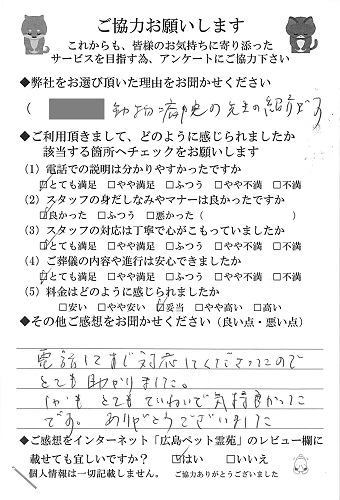 ご協力お願いします
これからも、皆様のお気持ちに寄り添った
サービスを目指す為、アンケートにご協力下さい
◆弊社をお選び頂いた理由をお聞かせください
( 動物病院の先生の紹介です
◆ご利用頂きまして、どのように感じられましたか
該当する箇所へチェックをお願いします
(1) 電話での説明は分かりやすかったですか
☑とても満足 □やや満足 □ふつう □やや不満 □不満
(2) スタッフの身だしなみやマナーは良かったですか
☑良かった □ふつう □悪かった ( )
(3) スタッフの対応は丁寧で心がこもっていましたか
☑とても満足 □やや満足 □ふつう □やや不満 □不満
(4) ご葬儀の内容や進行は安心できましたか
☑とても満足 □やや満足 □ふつう □やや不満 □不満
(5) 料金はどのように感じられましたか
□安い □やや安い ☑妥当 □やや高い □高い
◆その他ご感想をお聞かせください (良い点・悪い点)
電話にてすぐ対応してくださったので
とても助かりました。
しかも とてもていねいで気持良かった
です。 ありがとうございました
◆ご感想をインターネット「広島ペット霊苑」のレビュー欄に
載せても宜しいですか? ☑はい □いいえ
個人情報は一切記載しません。 ご協力ありがとうございました